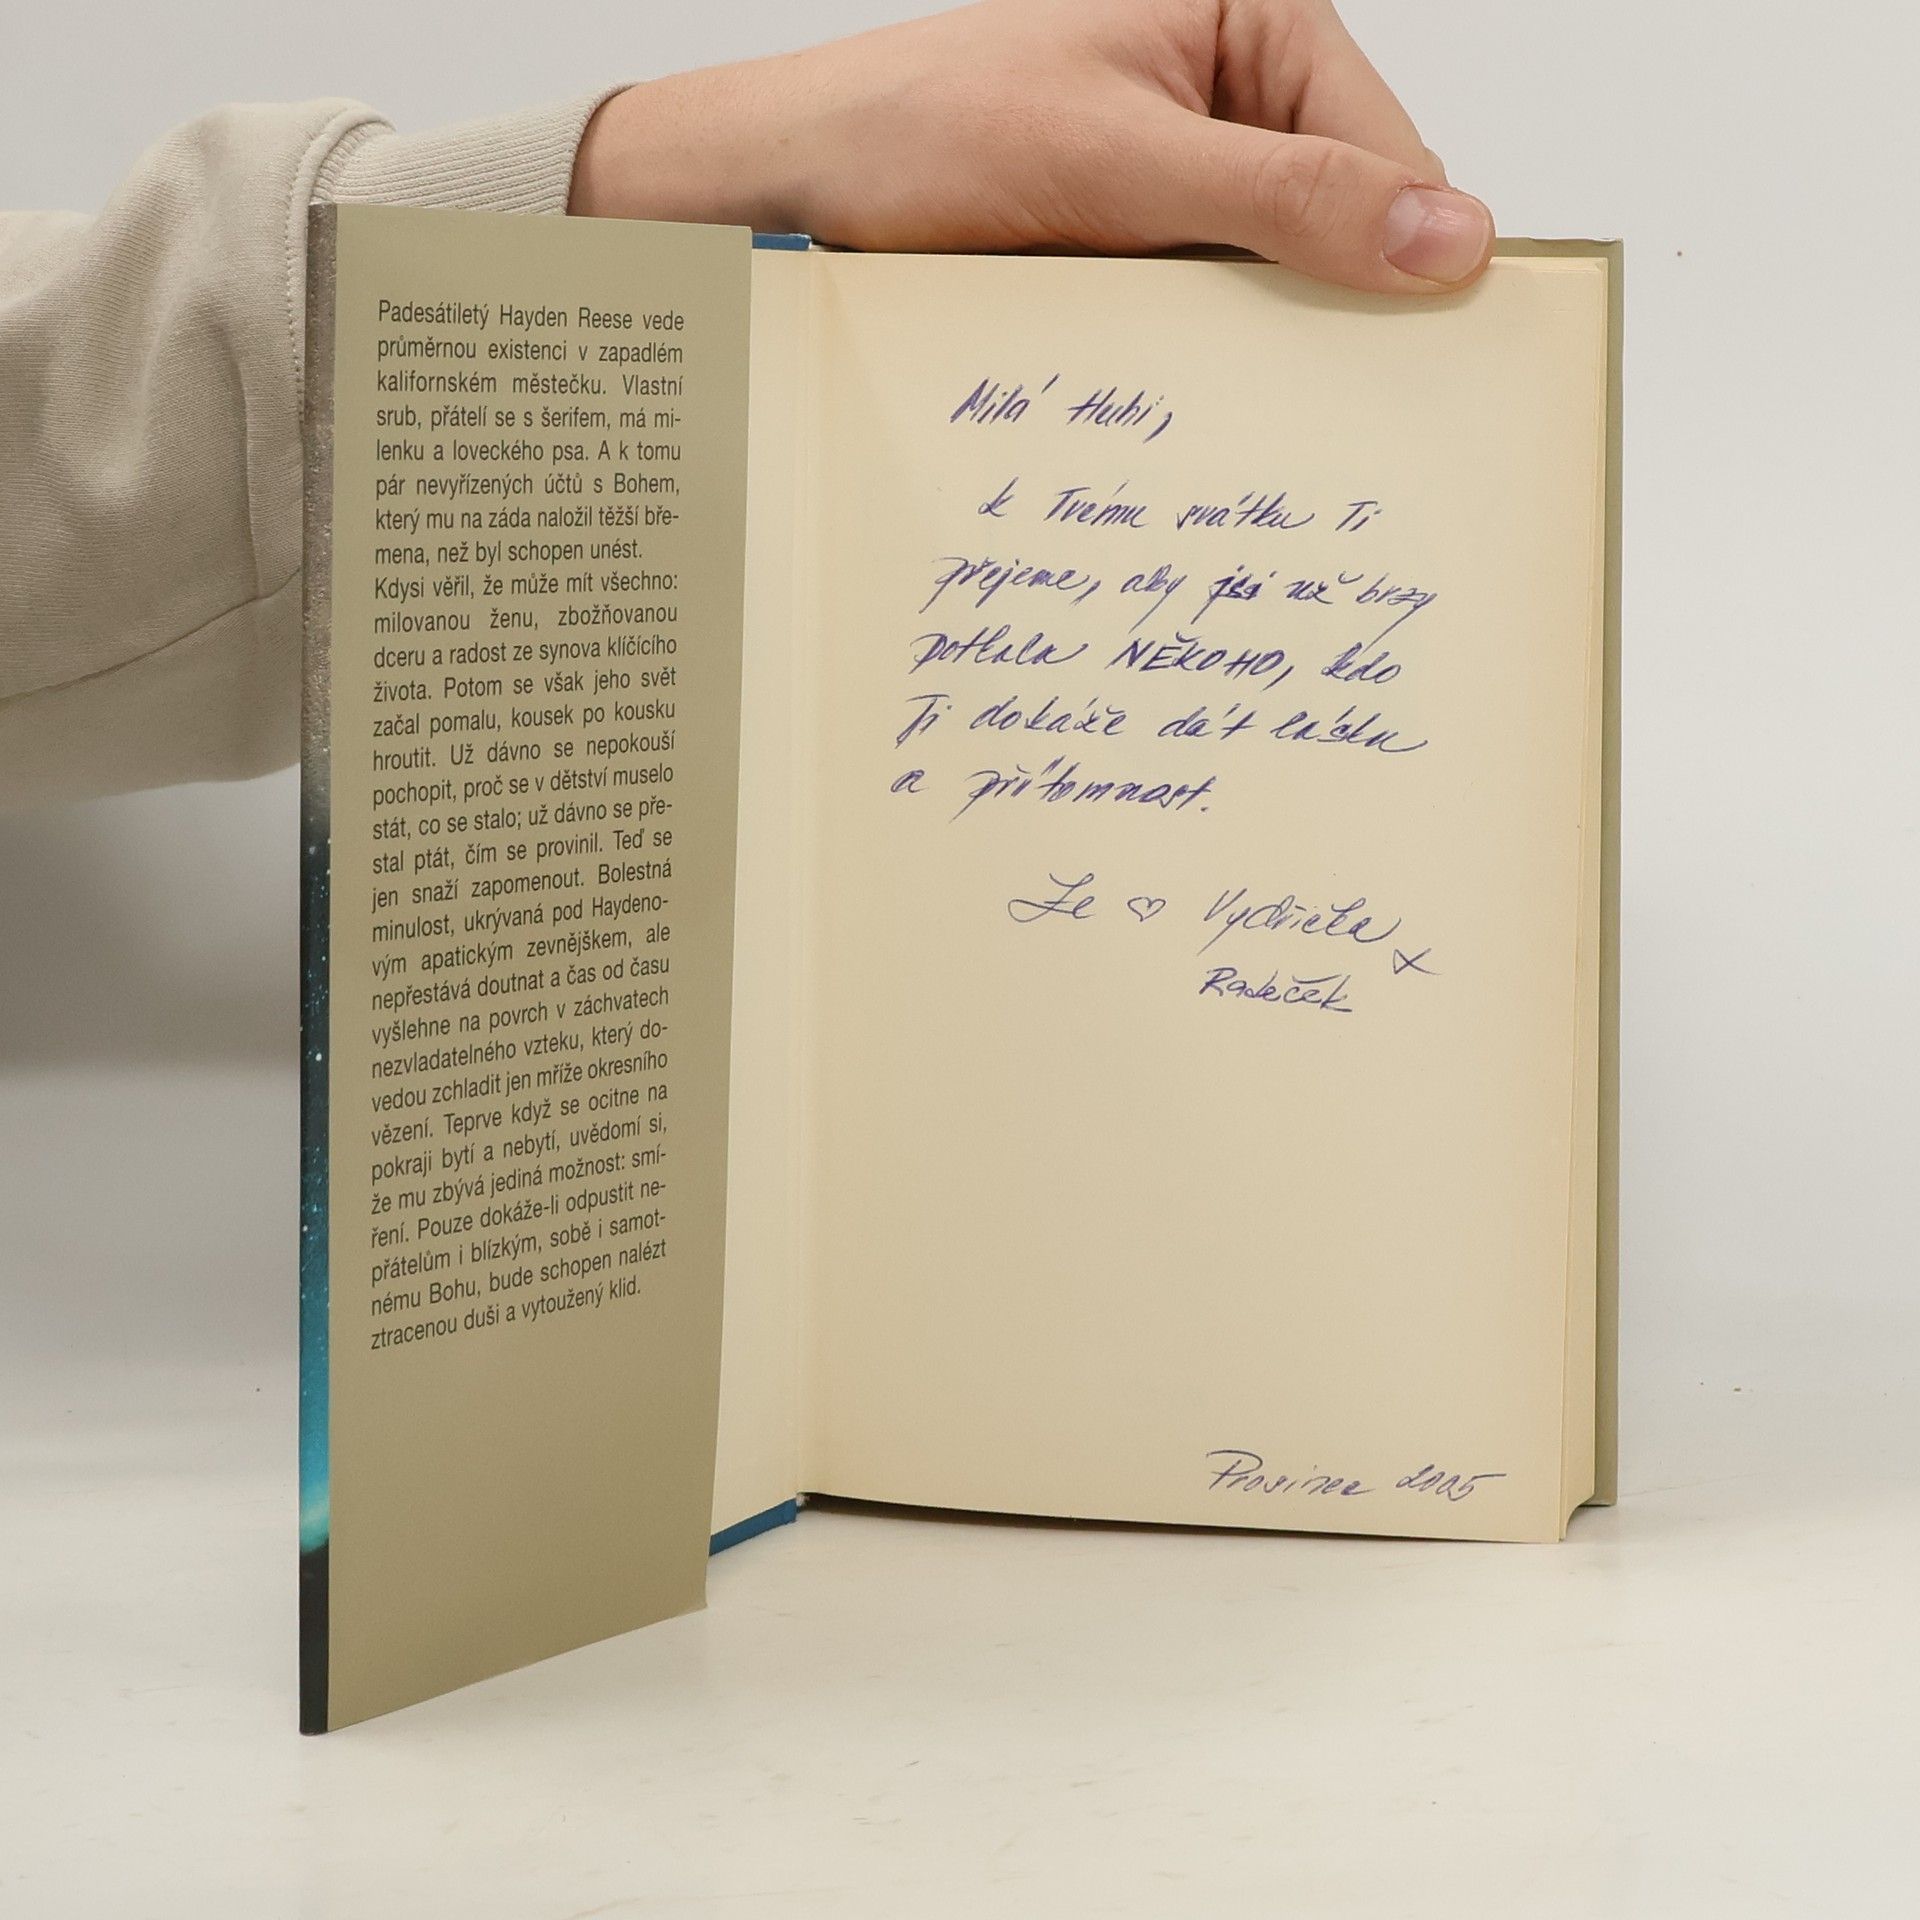 Padesátiletý Hayden Reese vede
průměrnou existenci v zapadlém
kalifornském městečku. Vlastní
srub, přátelí se s šerifem, má mi-
lenku a loveckého psa. A k tomu
pár nevyřízených účtů s Bohem,
který mu na záda naložil těžší bře-
mena, než byl schopen unést.
Kdysi věřil, že může mít všechno:
milovanou ženu, zbožňovanou
dceru a radost ze synova klíčícího
života. Potom se však jeho svět
začal pomalu, kousek po kousku
hroutit. Už dávno se nepokouší
pochopit, proč se v dětství muselo
stát, co se stalo; už dávno se pře-
stal ptát, čím se provinil. Teď se
jen snaží zapomenout. Bolestná
minulost, ukrývaná pod Haydeno-
vým apatickým zevnějškem, ale
nepřestává doutnat a čas od času
vyšlehne na povrch v záchvatech
nezvladatelného vzteku, který do-
vedou zchladit jen mříže okresního
vězení. Teprve když se ocitne na
pokraji bytí a nebytí, uvědomí si,
že mu zbývá jediná možnost: smí-
ření. Pouze dokáže-li odpustit ne-
přátelům i blízkým, sobě i samot-
nému Bohu, bude schopen nalézt
ztracenou duši a vytoužený klid.
Milá
k Tvému svátku Ti
přejeme, aby jsi už brzy
potkala NĚKOHO, kdo
Ti dokáže dát lásku
a přítomnost.
Ze ♡ Vydřička
Radeček
Prosinec 2005